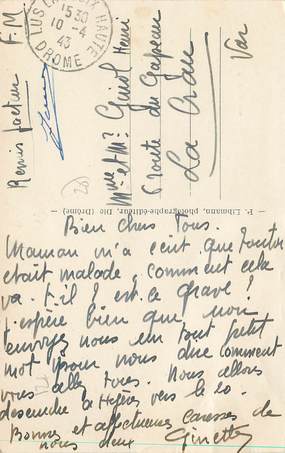 F.M.
LUS LA CROIX HAUTE
15 30
10-4
43
DROME
Remis facteur
Mme et Mr Guiol Henri
Route du Gapeau
La Crau
Var
P. Libmann, photographe-éditeur, Die (Drôme)
Bien chers Tous.
Maman m'a écrit que tonton
etait malade, comment cela
va-t-il? est ce grave!
J'espère bien que non
envoyez nous un tout petit
mot pour nous dire comment
vous allez tous. Nous allons
descendre a Hyères vers le 20.
Bonnes et affectueuses caresses de
nous deux Ginette